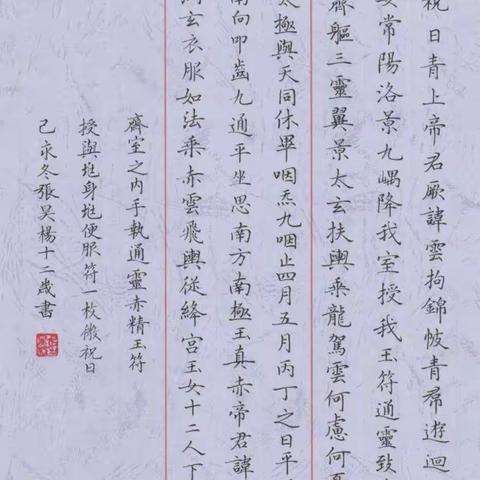 祝曰青上帝君厥諱雲拘錦帔青帬遊迴
常陽洛景九嵎降我室授我玉符通靈致
齊軀三靈翼景太玄扶輿乘龍駕雲何慮何
太極與天同休畢咽炁九咽止四月五月丙丁之日平
南向叩齒九通平坐思南方南極玉真赤帝君諱
玄衣服如法乘赤雲飛輿從絳宮玉女十二人下
齋室之内手執通靈赤精玉符
授與垗身垗便服符一枚微祝曰
己亥冬張昊楊十二歲書